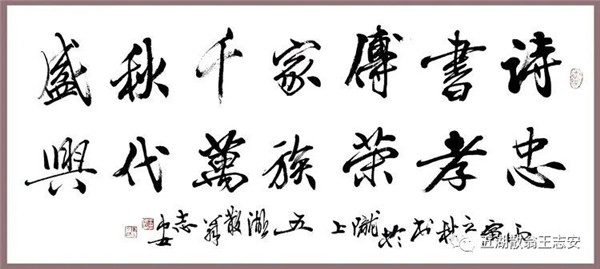 詩書傳家千秋盛
忠孝荣族萬代興
寅之秋书於隴上五湖散翁志安
五湖散翁王志安